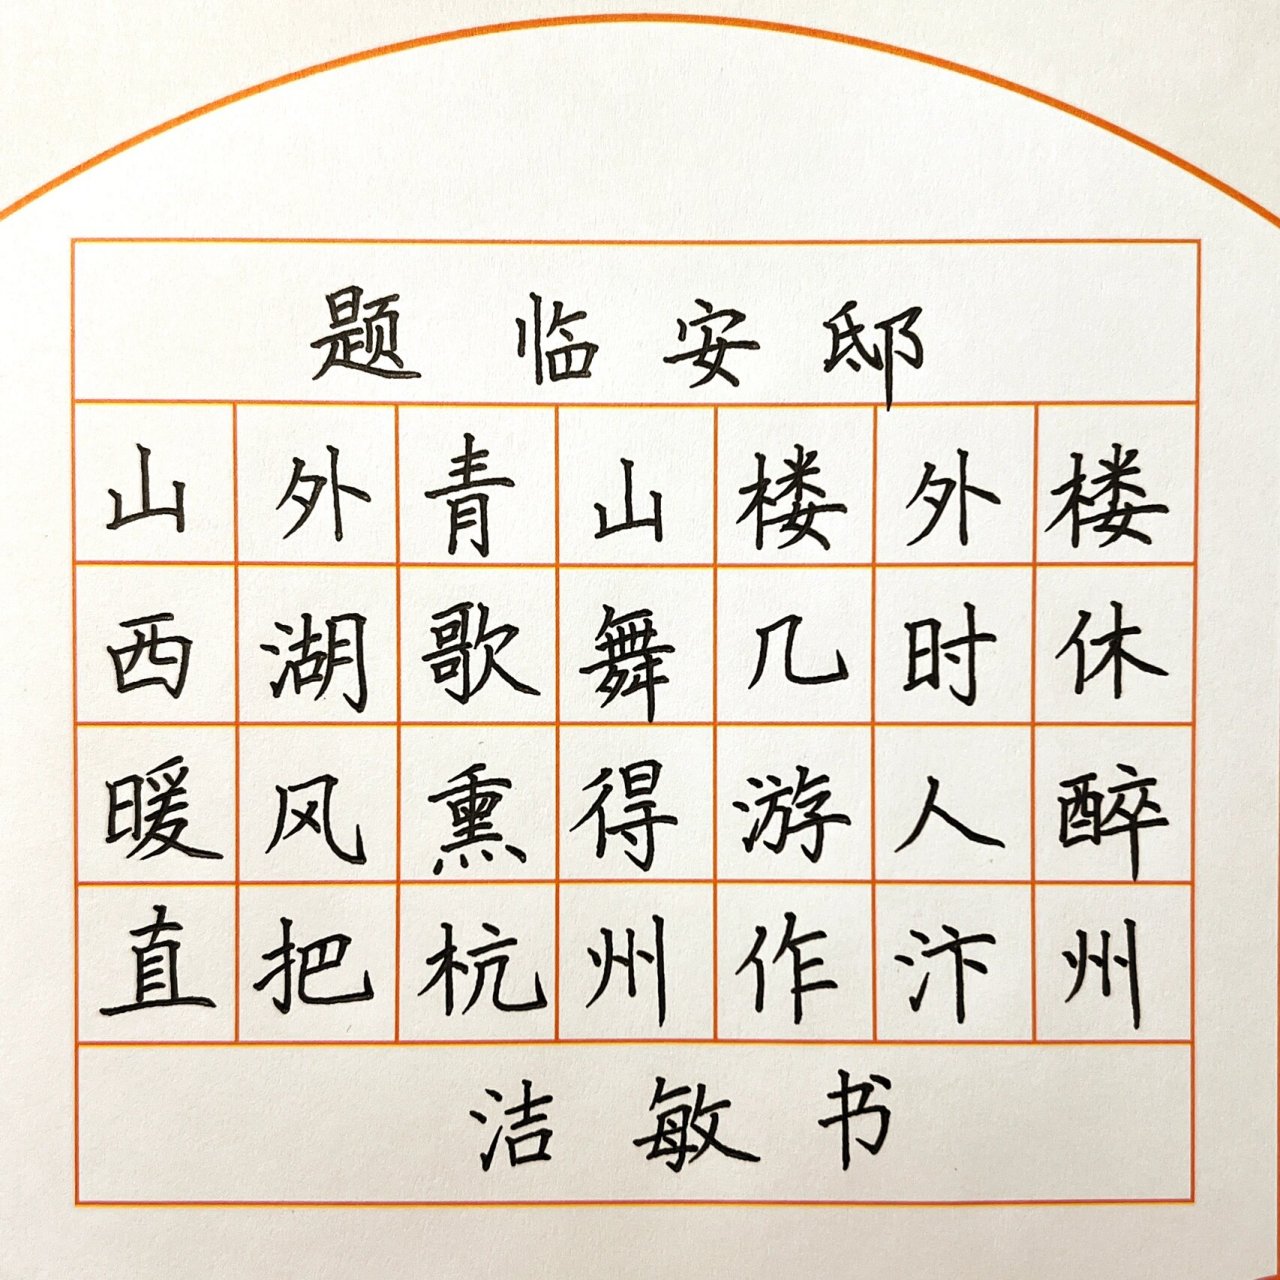 题临安邸
山外青山楼外楼
西湖歌舞几时休
暖风熏得游人醉
直把杭州作汴州
洁敏书